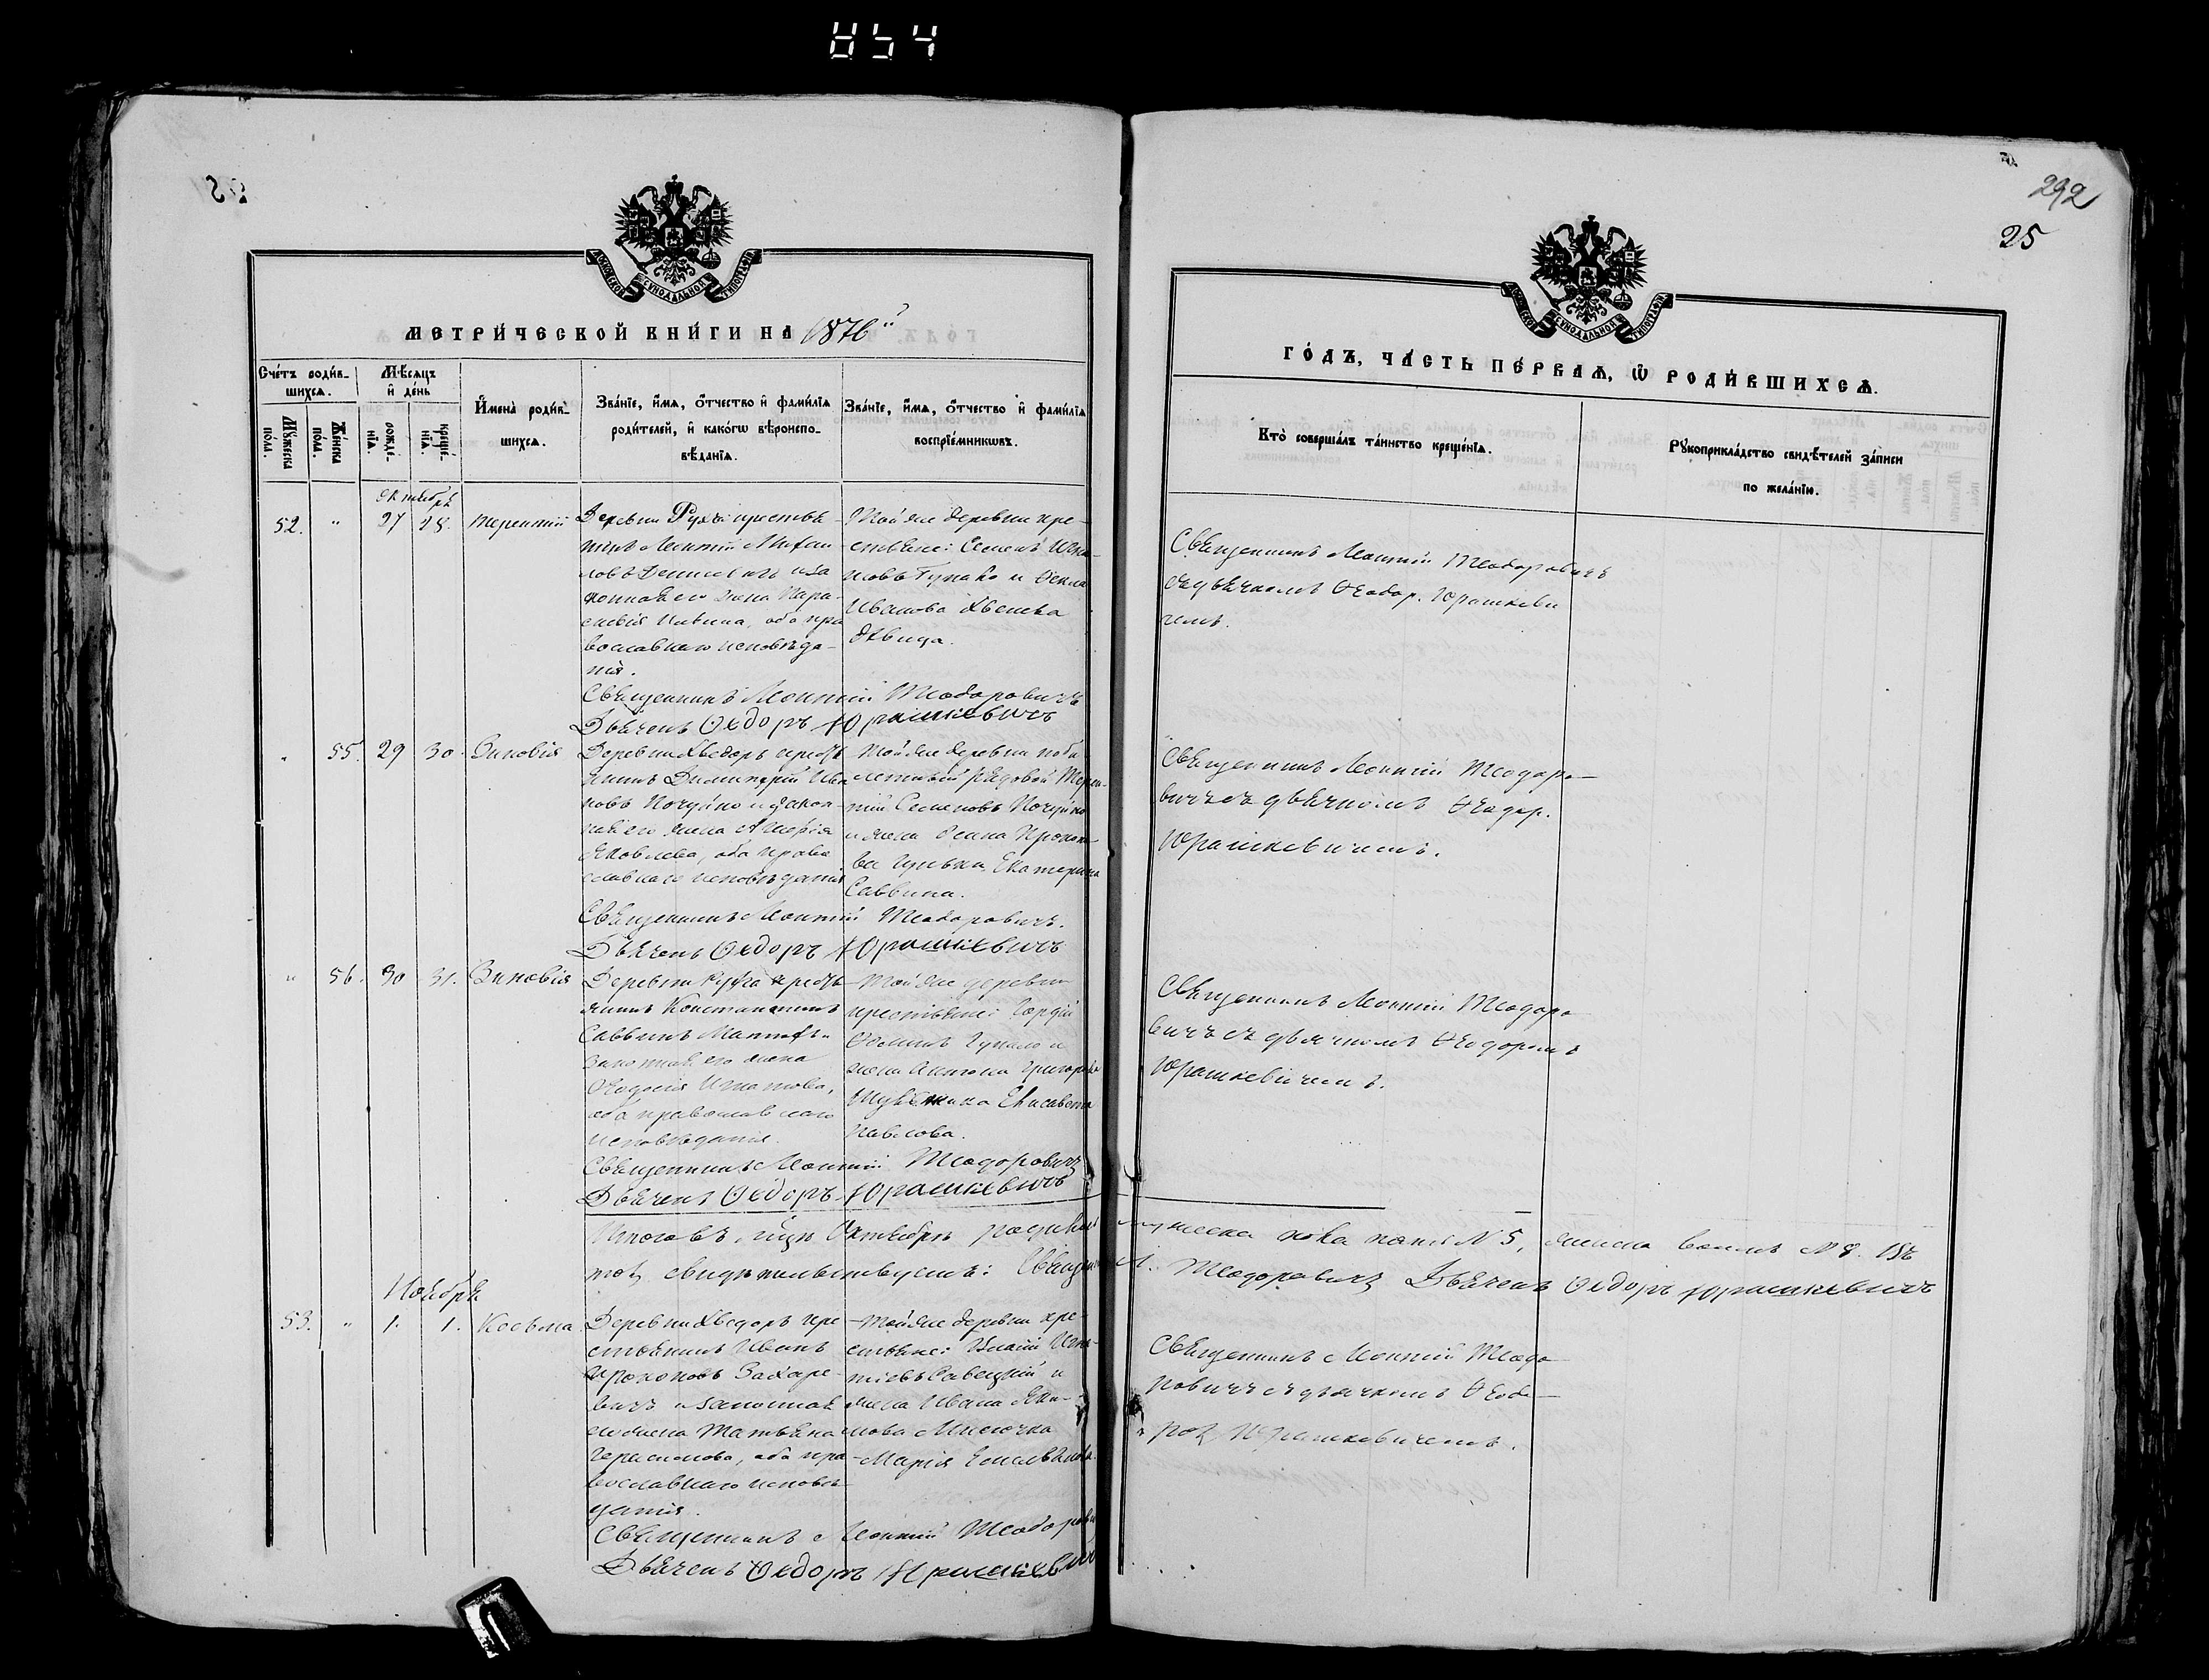 854
292
25
МЕТРИ́ЧЕСКОЙ КНИ́ГИ НА 1876й
ГО́ДЪ, ЧА́СТЬ ПЕ́РВАѦ, Ѿ РОДИ́ВШИХСѦ.
Сче́тъ роди́в-
шихсѧ.
Мꙋ́жеска
по́ла.
Же́нска
по́ла.
Мѣ́сѧцъ
и҆ де́нь
рожде́-
нїѧ.
креще́-
нїѧ.
И҆мена̀ роди́в-
шихсѧ.
Зва́нїе, и҆́мѧ, ѻ҆́тчество и҆ фами́лїѧ
роди́телей, и҆ како́гѡ вѣроиспо-
вѣ́данїѧ.
Зва́нїе, и҆́мѧ, ѻ҆́тчество и҆ фами́лїѧ
воспрїе́мникѡвъ.
Кто̀ соверша́лъ та́инство креще́нїѧ.
Рꙋкоприкла́дство свидѣ́телей за́писи
по жела́нїю.
Октябрь
52. " 27 28. Терентій
Деревни крестья-
нинъ Леонтій Михаи-
ловъ Денисевичъ и за
конная его жена Пара-
скевія Иавина, оба пра
вославнаго исповѣда-
нія.
Той же деревни кре-
стьяне: Семенъ
и Текла
Иванова
дѣвица.
Священникъ Леонтій Теодоровичъ
Дьячекъ Ѳедоръ Юрашкевичъ
Священникъ Леонтій Теодоровичъ
съ дьячкомъ Ѳеодор. Юрашкеви
чемъ.
" 55. 29 30. Зиновія
Деревни Хведоръ кресть
янинъ Димитрій Ива
новъ Почуйко и закон-
ная его жена
Яковлева, оба право
славнаго исповѣданія
Той же деревни
рядовой Терен-
тій Семеновъ Почуйко
и жена Прокопо-
ва Екатерина
Саввина.
Священникъ Леонтій Теодоровичъ.
Дьячекъ Ѳедоръ Юрашкевичъ
Священникъ Леонтій Теодоро-
вичъ съ дьячкомъ Ѳеодор.
Юрашкевичемъ.
" 56. 30 31. Зиновія
Деревни кресть
янинъ Константинъ
Саввинъ
законная его жена
Ѳеодосія Игнатова,
оба православнаго
исповѣданія.
Той же деревни
крестьяне: Гордій
и
жена Антона Григорьева
Елисавета
Павлова.
Священникъ Леонтій Теодоровичъ
Дьячекъ Ѳедоръ Юрашкевичъ
Священникъ Леонтій Теодоро
вичъ съ дьячкомъ Ѳеодоромъ
Юрашкевичемъ.
Итого въ м-цѣ Октябрѣ мужеска пола № 5, женска № 8.
свидѣтельствуемъ: Теодоровичъ Дьячекъ Ѳедоръ Юрашкевичъ
Ноябрь
53. " 1. 1. Косьма.
Деревни Хведоръ кре
стьянинъ Иванъ
Прокоповъ Захаре-
вичъ и законная
его жена Татьяна
Герасимова, оба пра
вославнаго исповѣ-
данія.
Той же деревни кре-
стьяне: Игна-
тіевъ Савецкій и
жена Ивана Яки-
мова
Марія Емельянова.
Священникъ Леонтій Теодоровичъ
Дьячекъ Ѳедоръ Юрашкевичъ
Священникъ Леонтій Теодо
ровичъ съ дьячкомъ Ѳеодо-
ромъ Юрашкевичемъ.